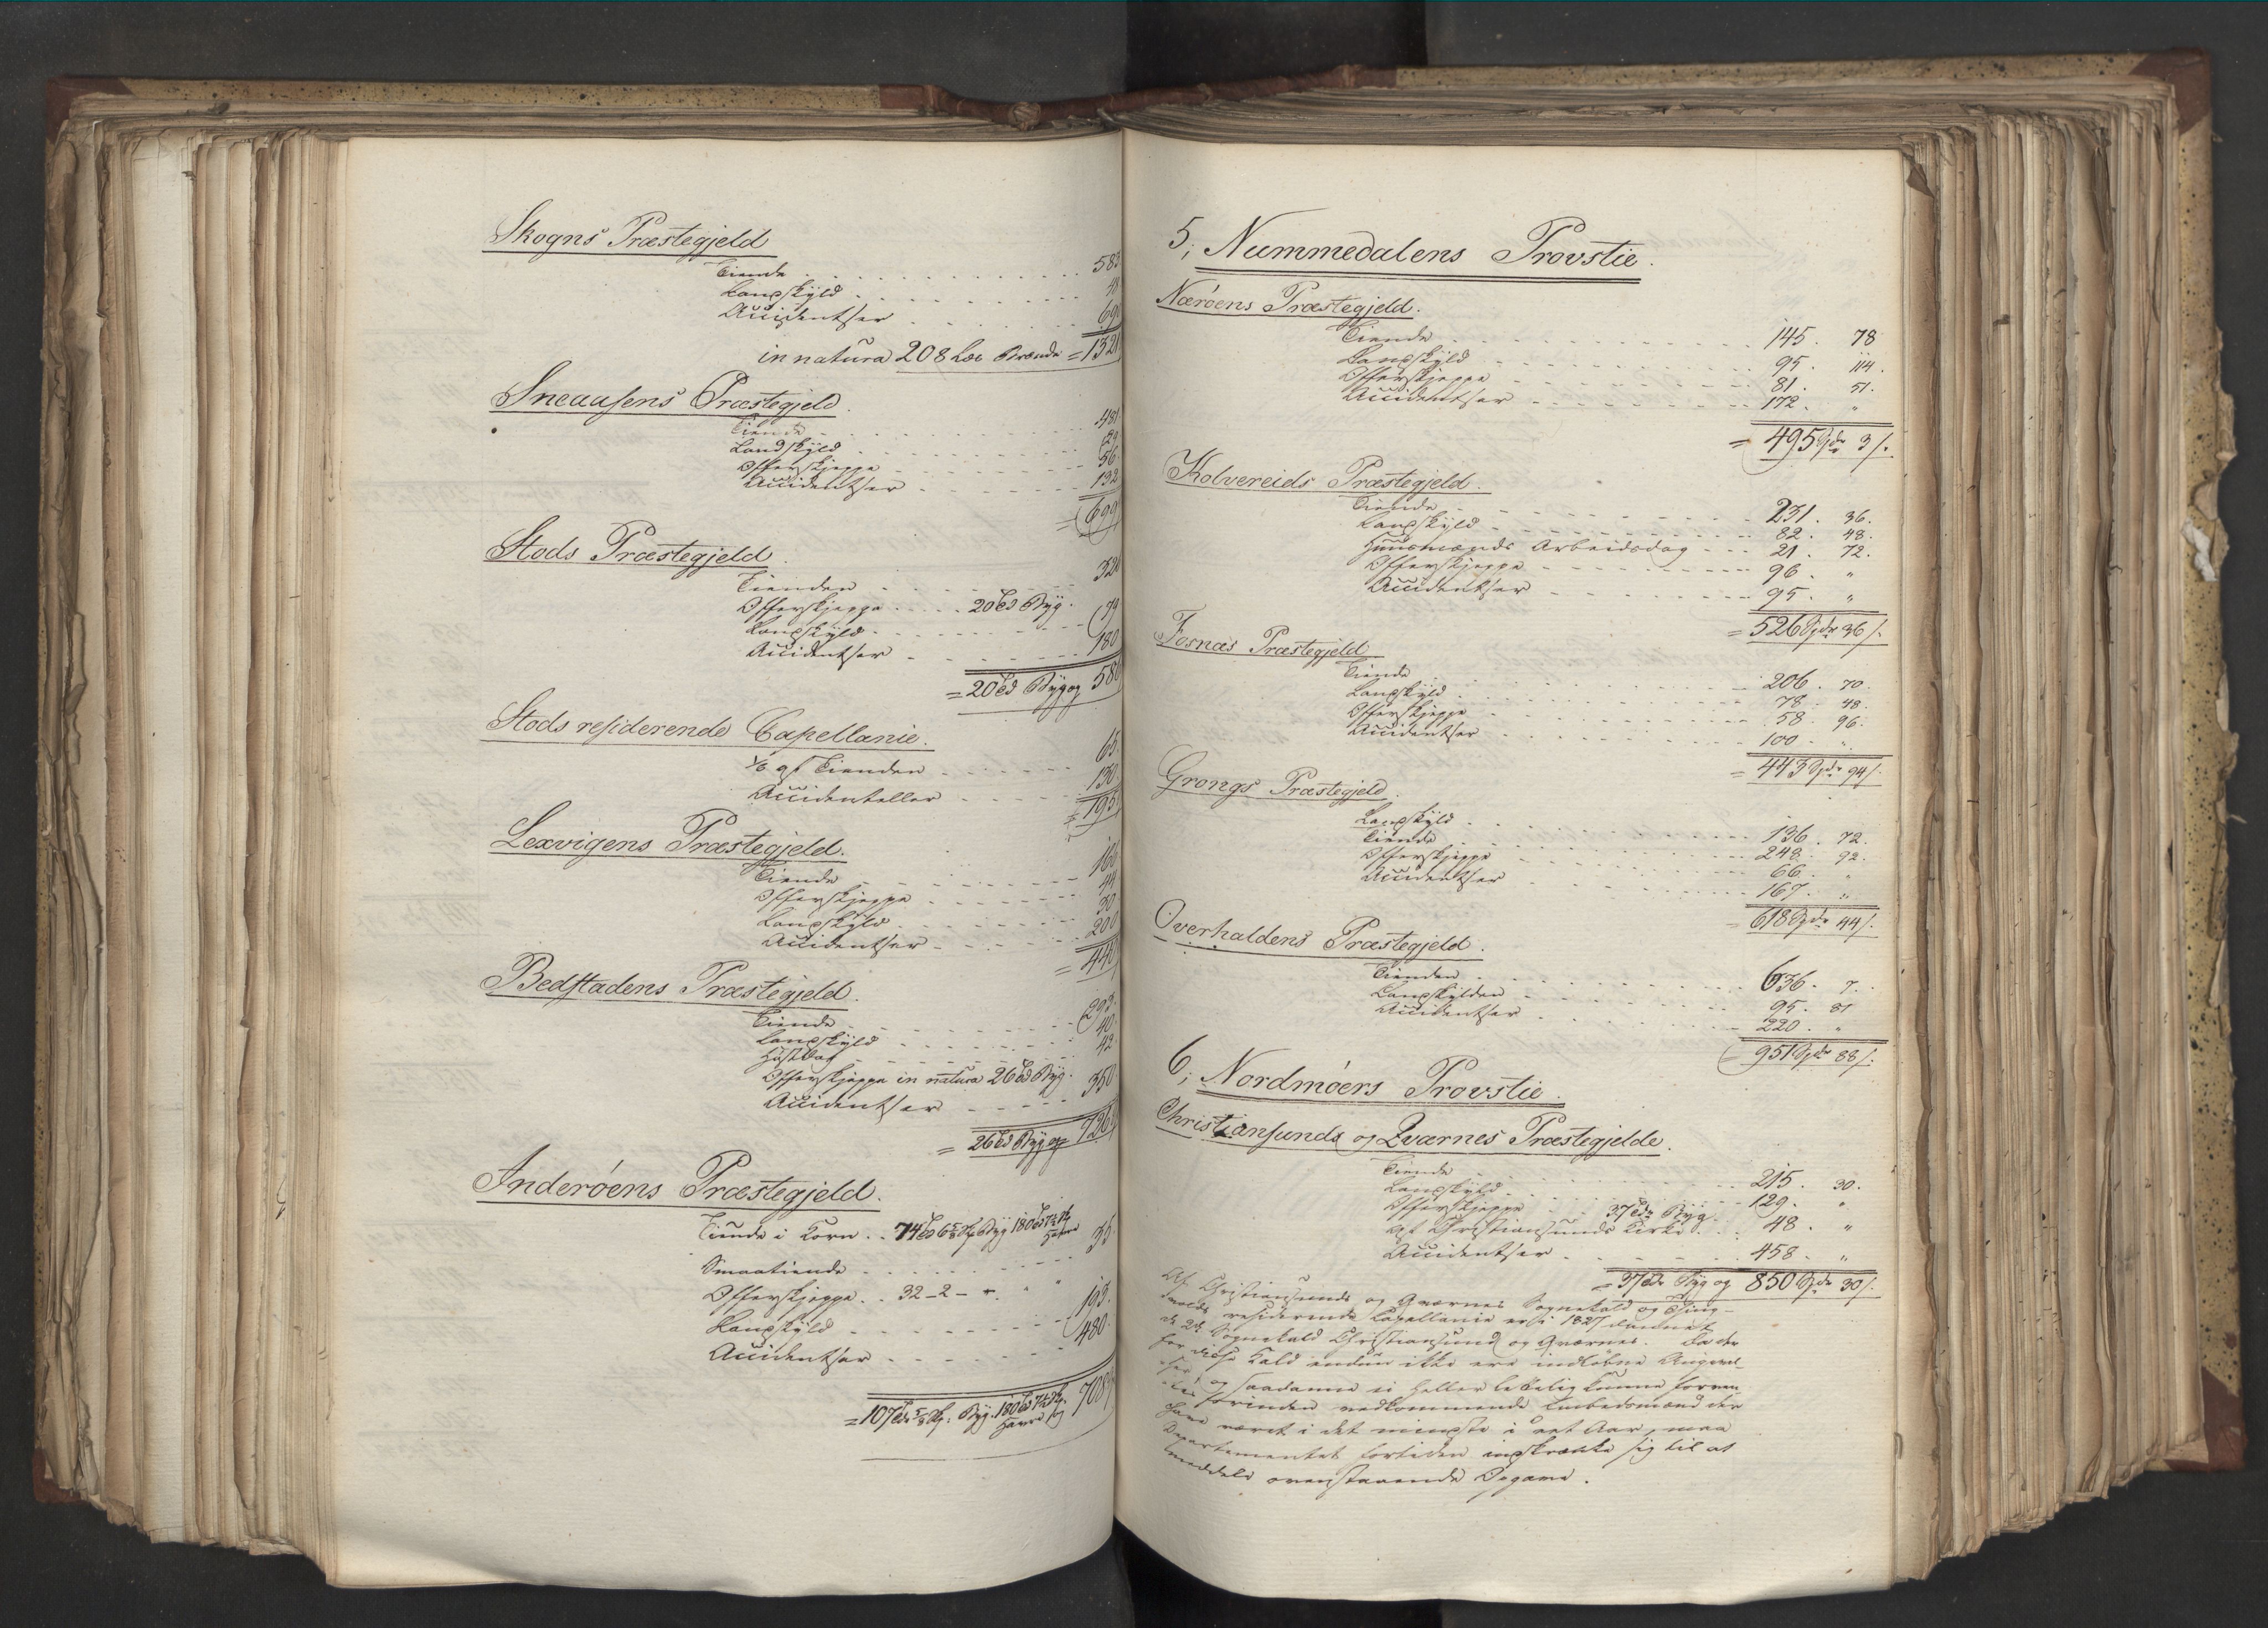 Skogns Præstegjeld
Tiende 583
Landskyld 48
Accidentser 690
in natura 208 Læs Brænde = 1321
Sneaasens Præstegjeld.
Tiende 481.
Landskyld 29.
Offerskjeppe 56.
Accidentser 132
= 699
Stods Præstegjeld.
Tienden 326
Offerskjeppe 20 Td Byg.
Landskyld 79
Accidentser 180
= 20 Td Byg og 586
Stods residerende Capellanie.
1/6 af Tienden 65.
Accidentseller 130.
= 195.
Lexvigens Præstegjeld.
Tiende 166
Offerskjeppe 44
Landskyld 30
Accidentser 200
= 440
Bedstadens Præstegjeld.
Tiende 293.
Landskyld 40.
42.
Offerskjeppe in natura 26 Td Byg.
Accidentser 350
= 26 Td Byg og 726
Inderøens Præstegjeld.
Tiende i Korn
Smaatiende 35
Offerskjeppe 32-2-
Landskyld 193.
Accidentser 480.
708
5, Nummedalens Provstie.
Nærøens Præstegjeld.
Tiende 145. 78
Landskyld 95. 114.
Offerskjeppe 81. 51.
Accidentser 172. "
= 495 Spdr 3 /.
Kolvereids Præstegjeld.
Tiende 231. 36.
Landskyld 82. 48.
Huusmænds Arbeidsdag 21. 72.
Offerskjeppe 96. "
Accidentser 95. "
= 526 Spdr 36 /.
Fosnæs Præstegjeld
Tiende 206. 70.
Landskyld 78. 48.
Offerskjeppe 58. 96.
Accidentser 100. "
= 443 Spdr 94 /.
Grongs Præstegjeld.
Landskyld 136. 72.
Tiende 248. 92.
Offerskjeppe 66. "
Accidentser 167. "
= 618 Spdr 44 /.
Overhaldens Præstegjeld.
Tienden 636. 7.
Landskylden 95. 81
Accidentser 220. "
= 951 Spdr 88 /.
6, Nordmøers Provstie.
Christiansunds og Qværnes Præstegjelde.
Tiende 215. 30.
Landskyld 129. "
Offerskjeppe 37 Tdr Byg.
af Christiansunds Kirke 48. "
Accidentser 458. "
= 37 Tdr Byg og 850 Spdr 30 /.
Af Christiansunds og Qværnes Sognekald og Thing-
volds residerende Capellanie er i 1827 dannet
de 2de Sognekald Christiansund og Qværnes. Da der
for disse Kald endnu ikke ere indløbne Angivel-
ser, og saadanne ei heller lettelig kunne forven-
tes forinden vedkommende Embedsmænd der
have været i det mindste i eet Aar, maa
Departementet fortiden indskrænke sig til at
meddele ovenstaaende Opgave.